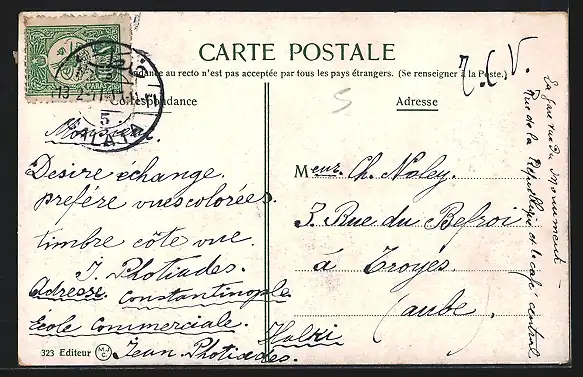 CARTE POSTALE
T.C.V.
dance au recto n'est pas acceptée par tous les pays étrangers. (Se renseigner à la Poste.)
Correspondance
Adresse
13 2 11
5
GALATA
Monsieur.
Desire échange
préfère vues colorées.
timbre côte vue.
J. Photiades.
Adresse. Constantinople
École Commerciale. Halki
Jean Photiades.
Meur. Ch. Noley.
3. Rue du Befroi
à Troyes.
(aube.)
La gare rue du Monument
Rue de la République et le café central
323 Editeur M.J.C.